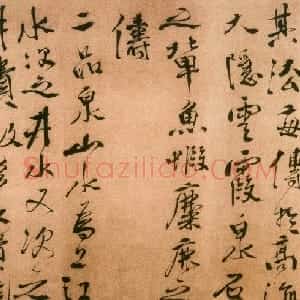 其法每傳於高流
大隱雲霞泉石
之輩魚蝦麋鹿之
儔
二品泉山水為上江
水次之井水又次之
井貴汲
Shufaziliao.c